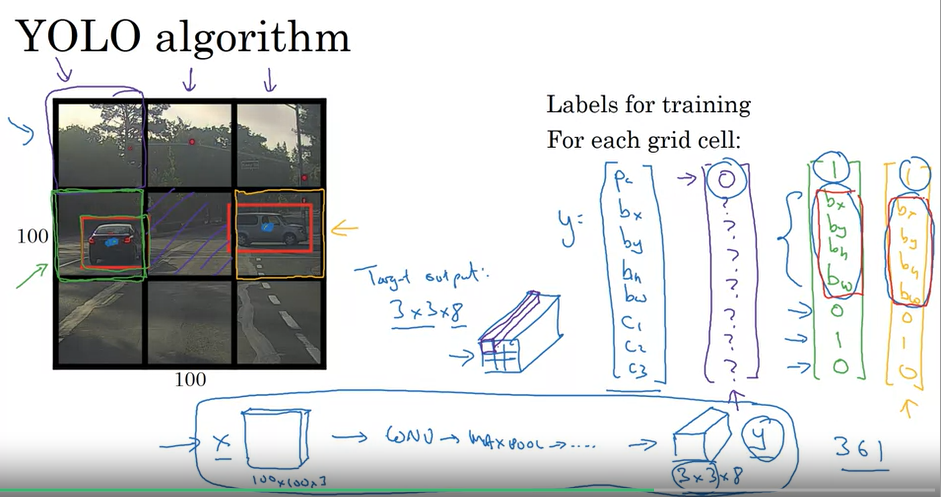 YOLO algorithm
Labels for training
For each grid cell:
y =
Pc
bx
by
bh
bw
C1
C2
C3
0
?
?
?
?
?
?
?
1
bx
by
bh
bw
0
1
0
1
bx
by
bh
bw
0
1
0
100
100
Target output:
3 x 3 x 8
x
100x100x3
→ CONV → MAXPOOL → ..... →
3x3x8
y
361